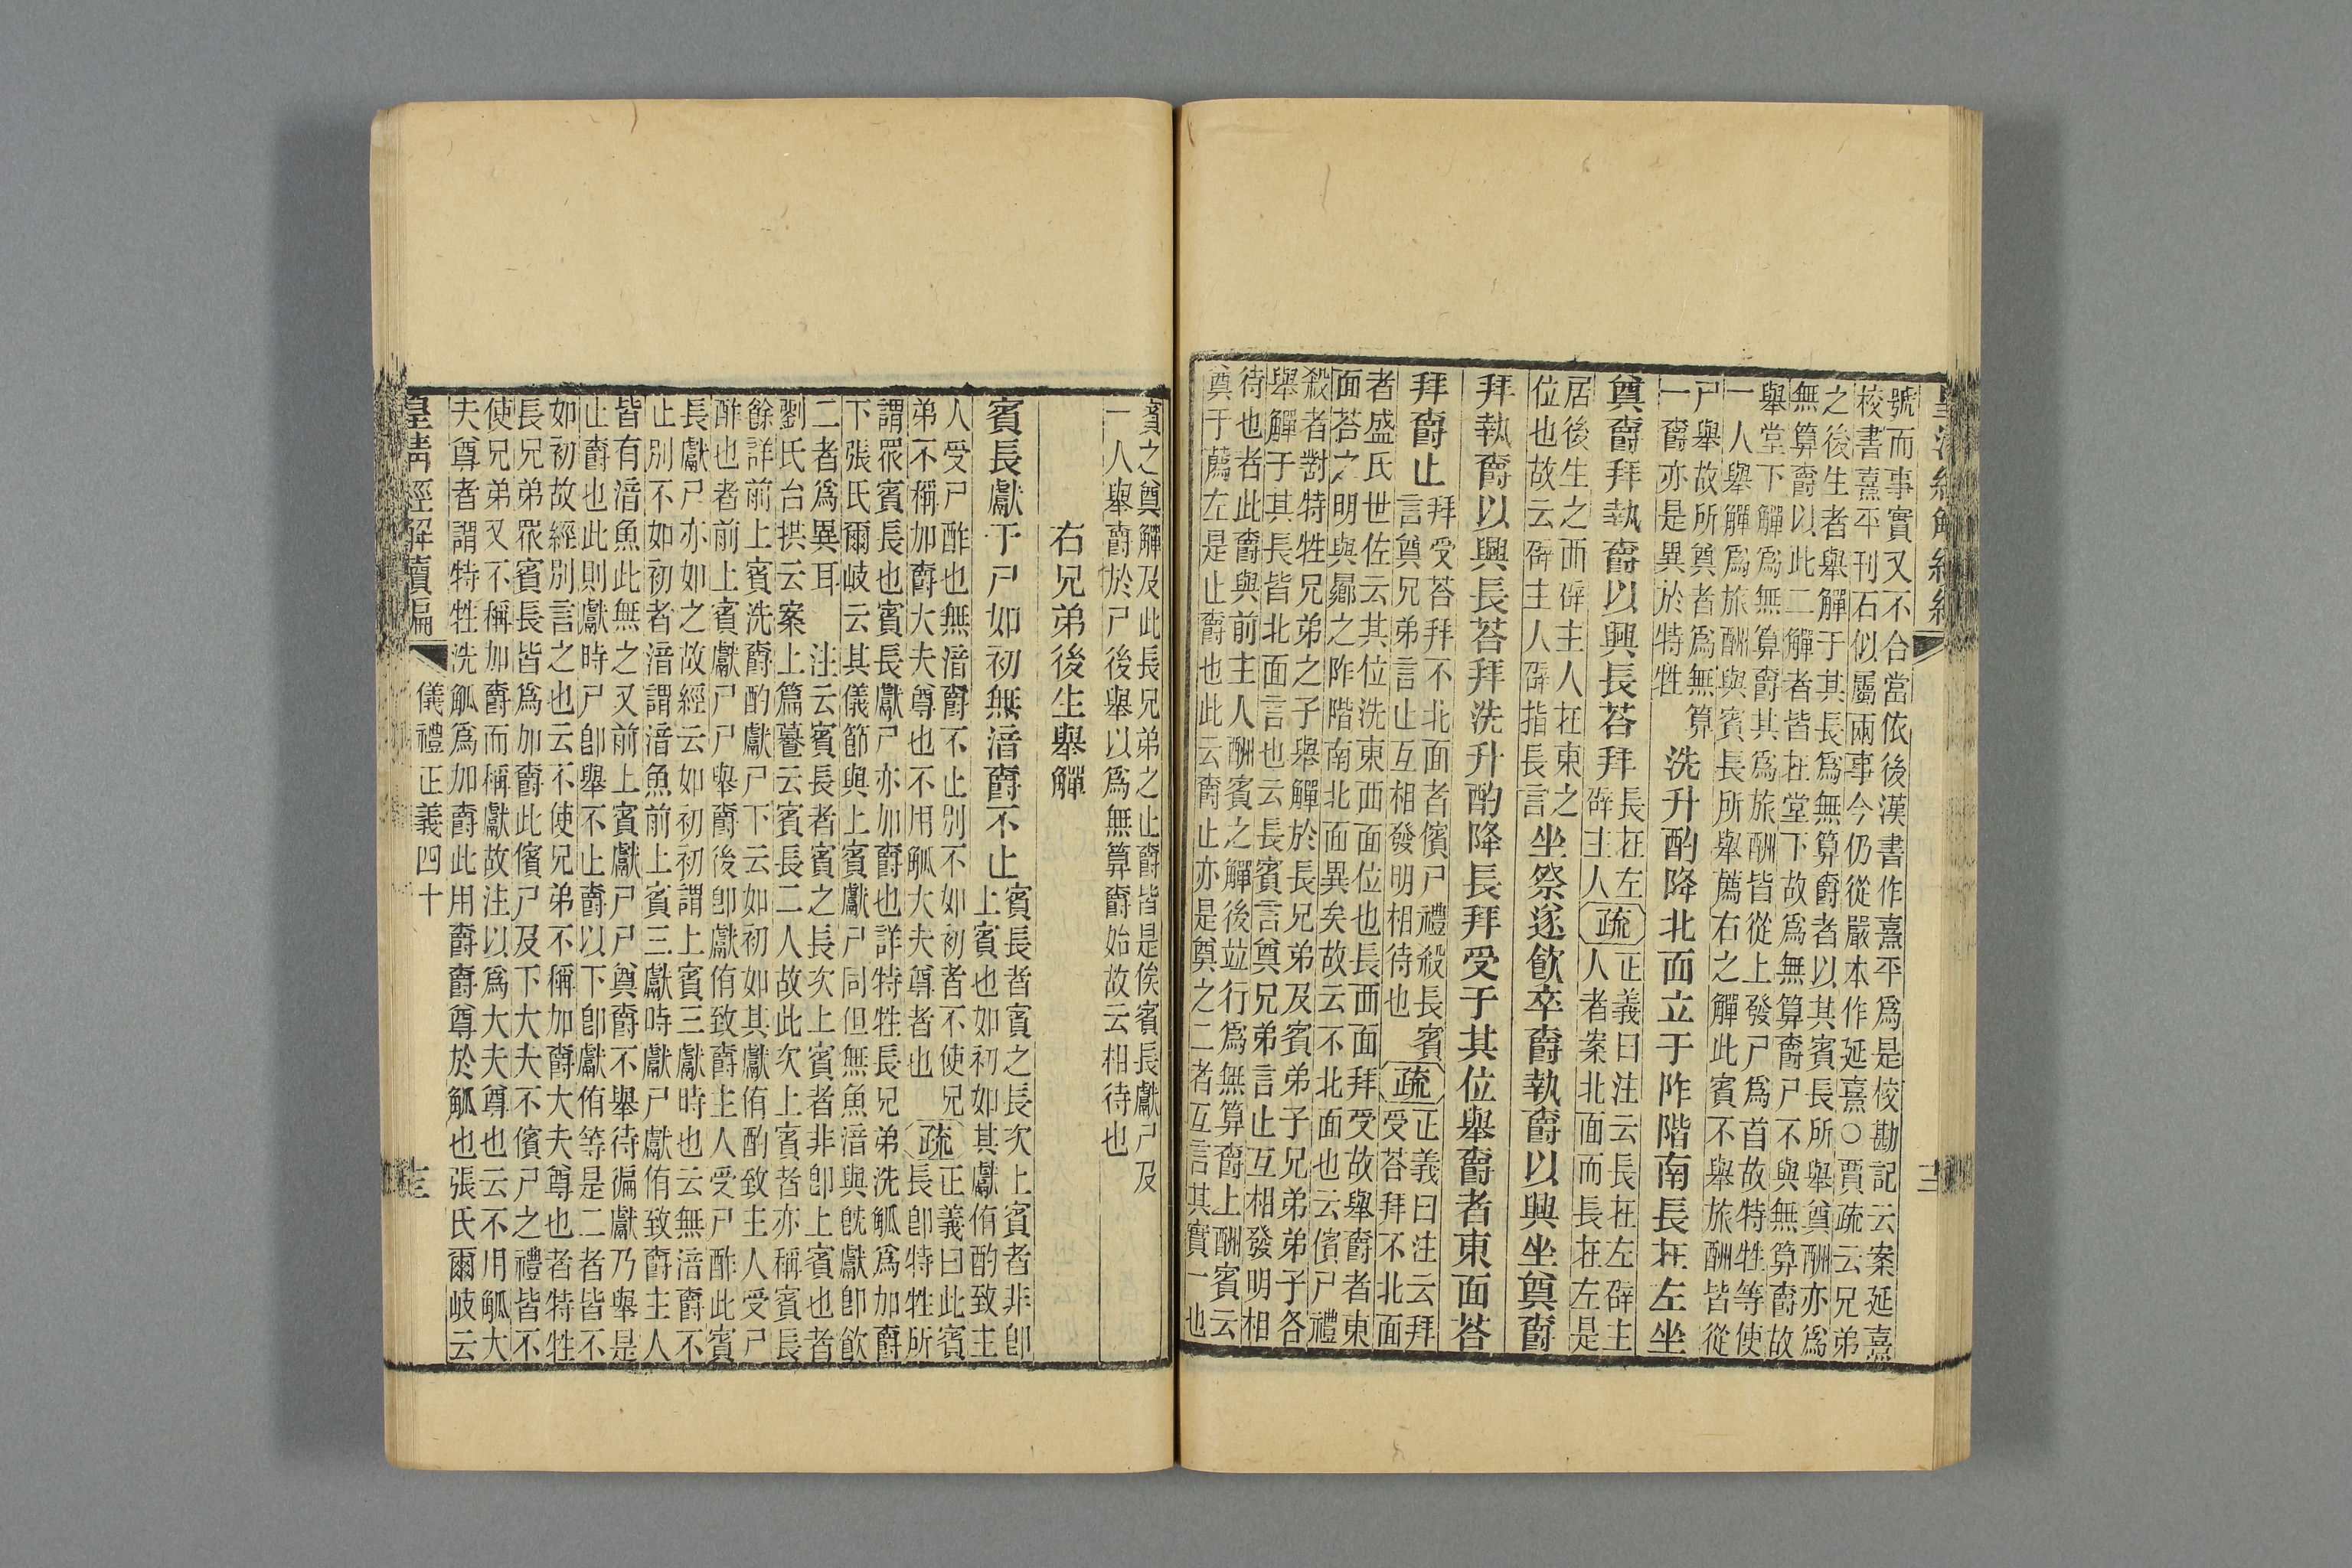 號而事實又不合當依後漢書作熹平爲是校勘記云案延熹
校書熹平刊石似屬兩事今仍從嚴本作延熹○賈疏云兄弟
之後生者舉觶于其長爲無算爵者以其賓長所舉奠酬亦爲
無算爵以此二觶者皆在堂下故爲無算爵尸不與無算爵故
舉堂下觶爲無算爵其爲旅酬皆從上發尸爲首故特牲等使
一人舉觶爲旅酬與賓長所舉薦右之觶此賓不舉旅酬皆從
尸舉故所奠者爲無算
一爵亦是異於特牲
洗升酌降北面立于阼階南長在左坐
奠爵拜執爵以興長荅拜
長在左
辟主人
疏
正義曰注云長在左辟主
人者案北面而長在左是
居後生之西辟主人在東之
位也故云辟主人辟指長言
坐祭遂飮卒爵執爵以興坐奠爵
拜執爵以興長荅拜洗升酌降長拜受于其位舉爵者東面荅
拜爵止
拜受荅拜不北面者儐尸禮殺長賓
言奠兄弟言止互相發明相待也
疏
正義曰注云拜
受荅拜不北面
者盛氏世佐云其位洗東西面位也長西面拜受故舉爵者東
面荅之明與曏之阼階南北面異矣故云不北面也云儐尸禮
殺者對特牲兄弟之子舉觶於長兄弟及賓弟子兄弟弟子各
舉觶于其長皆北面言也云長賓言奠兄弟言止互相發明相
待也者此爵與前主人酬賓之觶後竝行爲無算爵上酬賓云
奠于薦左是止爵也此云爵止亦是奠之二者互言其實一也
賓之奠觶及此長兄弟之止爵皆是俟賓長獻尸及
一人舉爵於尸後舉以爲無算爵始故云相待也
右兄弟後生舉觶
賓長獻于尸如初無湆爵不止
賓長者賓之長次上賓者非卽
上賓也如初如其獻侑酌致主
人受尸酢也無湆爵不止別不如初者不使兄
弟不稱加爵大夫尊也不用觚大夫尊者也
疏
正義曰此賓
長卽特牲所
謂眾賓長也賓長獻尸亦加爵也詳特牲長兄弟洗觚爲加爵
下張氏爾岐云其儀節與上賓獻尸同但無魚湆與旣獻卽飮
二者爲異耳 注云賓長者賓之長次上賓者非卽上賓也者
劉氏台拱云案上篇云賓長二人故此次上賓者亦稱賓長
餘詳前上賓洗爵酌獻尸下云如初如其獻侑酌致主人受尸
酢也者前上賓獻尸尸舉爵後卽獻侑致爵主人受尸酢此賓
長獻尸亦如之故經云如初初謂上賓三獻時也云無湆爵不
止別不如初者湆謂湆魚前上賓三獻時獻尸獻侑致爵主人
皆有湆魚此無之又前上賓獻尸尸奠爵不舉待徧獻乃舉是
止爵也此則獻時尸卽舉不止爵以下卽獻侑等是二者皆不
如初故經別言之也云不使兄弟不稱加爵大夫尊也者特牲
長兄弟眾賓長皆爲加爵此儐尸及下大夫不儐尸之禮皆不
使兄弟又不稱加爵而稱獻故注以爲大夫尊也云不用觚大
夫尊者謂特牲洗觚爲加爵此用爵爵尊於觚也張氏爾岐云
皇清經解續編 儀禮正義四十